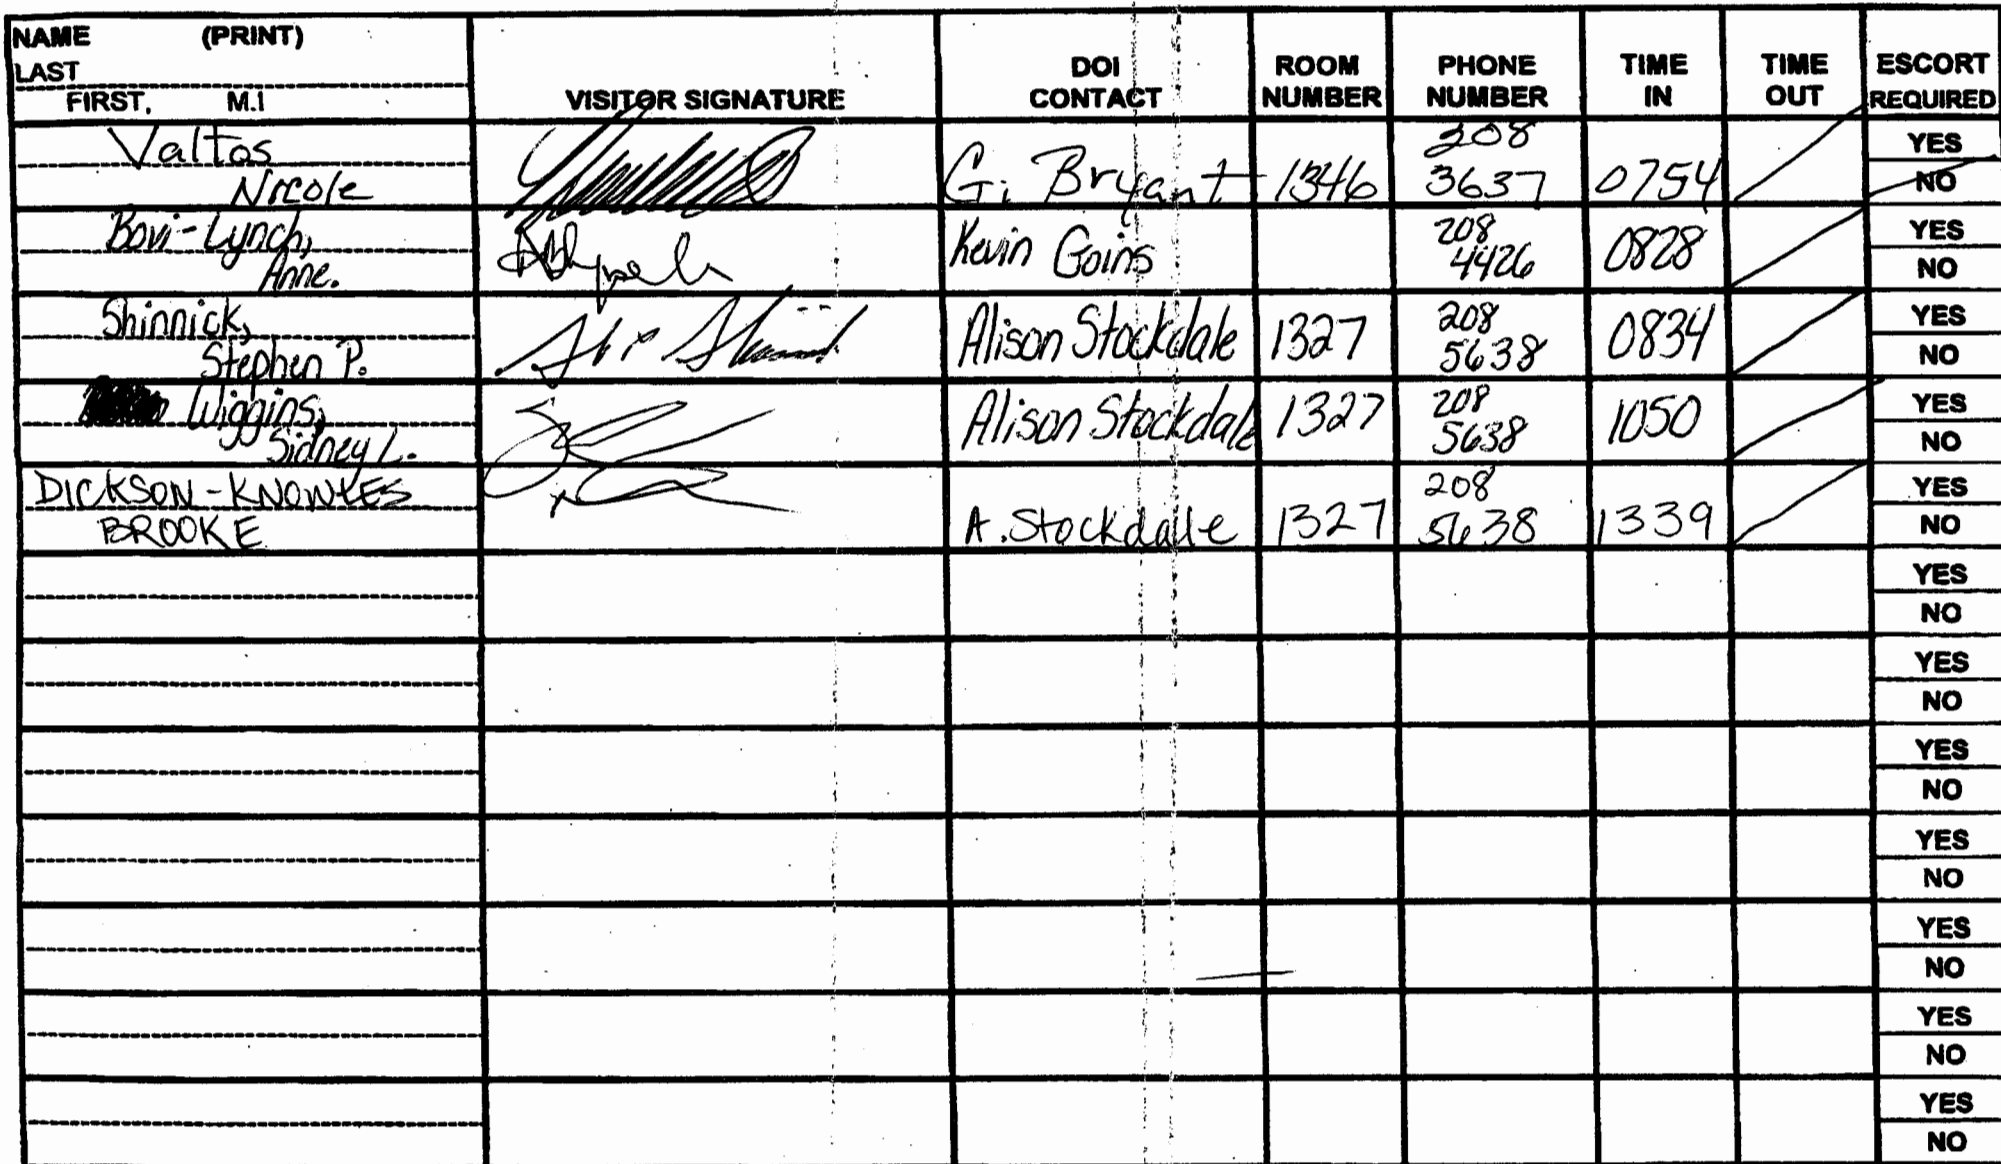 NAME (PRINT)
LAST
FIRST, M.I
VISITOR SIGNATURE
DOI
CONTACT
ROOM
NUMBER
PHONE
NUMBER
TIME
IN
TIME
OUT
ESCORT
REQUIRED
Valtos
Nicole
G. Bryant
1346
208
3637
0754
YES
NO
Bovi-Lynch,
Anne.
Kevin Goins
208
4426
0828
YES
NO
Shinnick,
Stephen P.
Alison Stockdale
1327
208
5638
0834
YES
NO
Wiggins,
Sidney L.
Alison Stockdale
1327
208
5638
1050
YES
NO
DICKSON-KNOWLES
BROOKE
A. Stockdale
1327
208
5638
1339
YES
NO
YES
NO
YES
NO
YES
NO
YES
NO
YES
NO
YES
NO
YES
NO